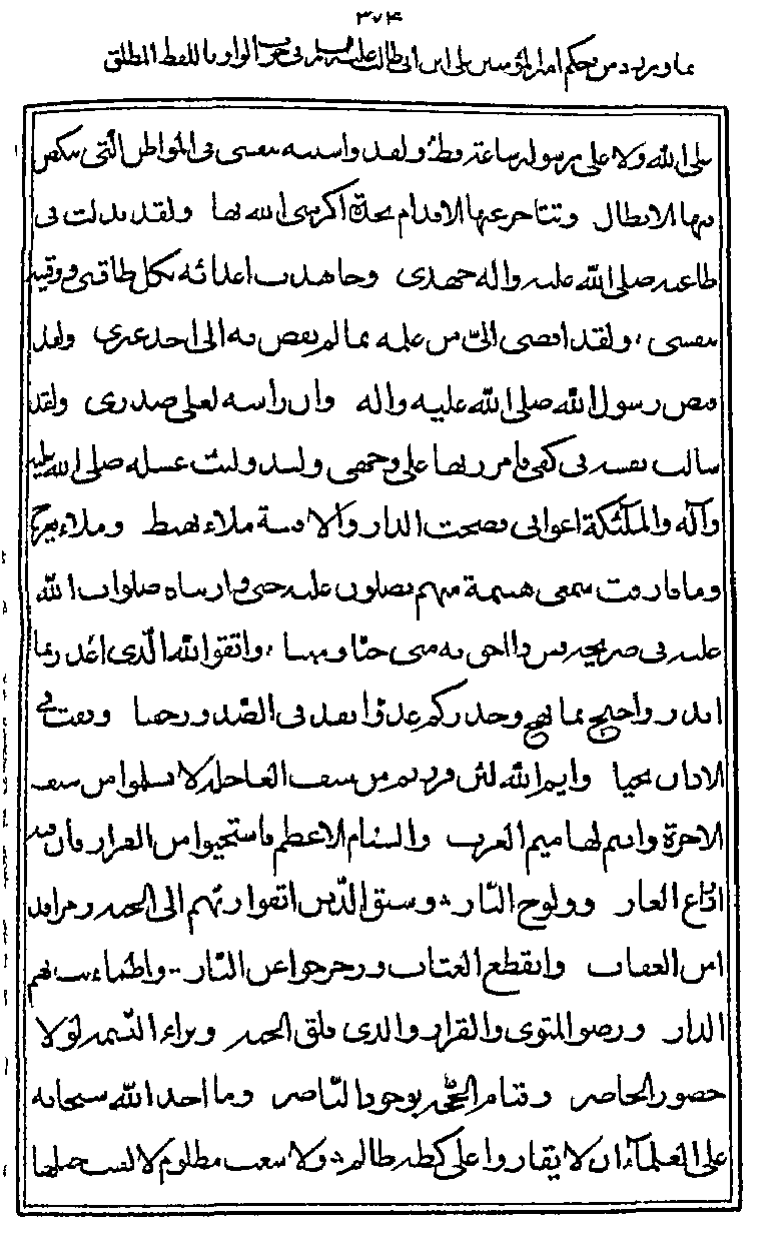 ٣٧۴
مما ورد من حكم امير المؤمنين علي ابن ابي طالب عليه السلم في حرف الواو باللفظ المطلق
على الله ولا على رسوله ساعة قط ولقد واسيته بنفسى فى المواطن الّتى تنكص
فيها الابطال وتتأخر عنها الاقدام نجدة اكرمنى الله بها ولقد بذلت فى
طاعته صلى الله عليه واله جهدى وجاهدت اعدائه بكل طاقتى ووقيته
بنفسى ولقد افضى الىّ من علمه بما لم يفض به الى احد غيرى ولقد
قبض رسول الله صلى الله عليه واله وان راسه لعلى صدرى ولقد
سالت نفسه فى كفى فامررتها على وجهى ولقد وليت غسله صلى الله عليه
وآله والملئكة اعوانى فضجت الدار والافنية ملاء يهبط وملاء يعرج
وما فارقت سمعى هينمة منهم يصلون عليه حتى واريناه صلوات الله
عليه فى ضريحه فمن ذا احق به منى حيّا وميتا واتقوا الله الّذى اعذر بما
انذر واحتج بما نهج وحذركم عدوّا نفذ فى الصّدور خفيا ونفث فى
الاذان نجيا وايم الله لئن فررتم من سيف العاجلة لا تسلموا من سيف
الاخرة وانتم لهاميم العرب والسنام الاعظم فاستحيوا من الفرار فان فيه
ادّراع العار وولوج النّار وسيق الّذين اتقوا ربّهم الى الجنة زمرا قد
امن العقاب وانقطع العتاب وزحزحوا عن النّار واطمأنت بهم
الدار ورضوا المثوى والقرار والذى فلق الحبة وبراء النّسمة لولا
حضور الحاضر وقيام الحجّة بوجود النّاصر وما اخذ الله سبحانه
على العلمآء ان لا يقاروا على كظة ظالم ولا سغب مظلوم لالقيت حبلها